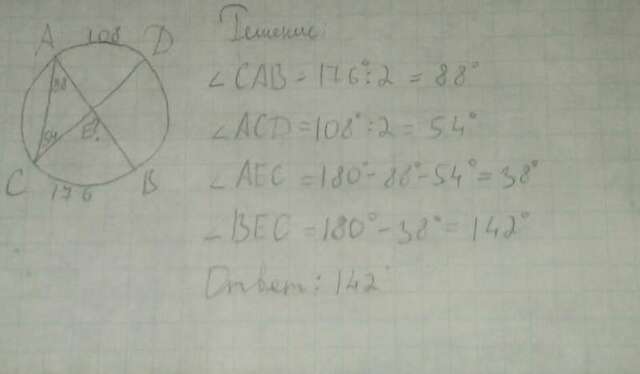 A 108 D
Решение:
∠CAB - 176° : 2 = 88°
88
∠ACD = 108° : 2 = 54°
54 E
∠AEC = 180° - 88° - 54° = 38°
C 176 B
∠BEC = 180° - 38° = 142°
Ответ: 142°